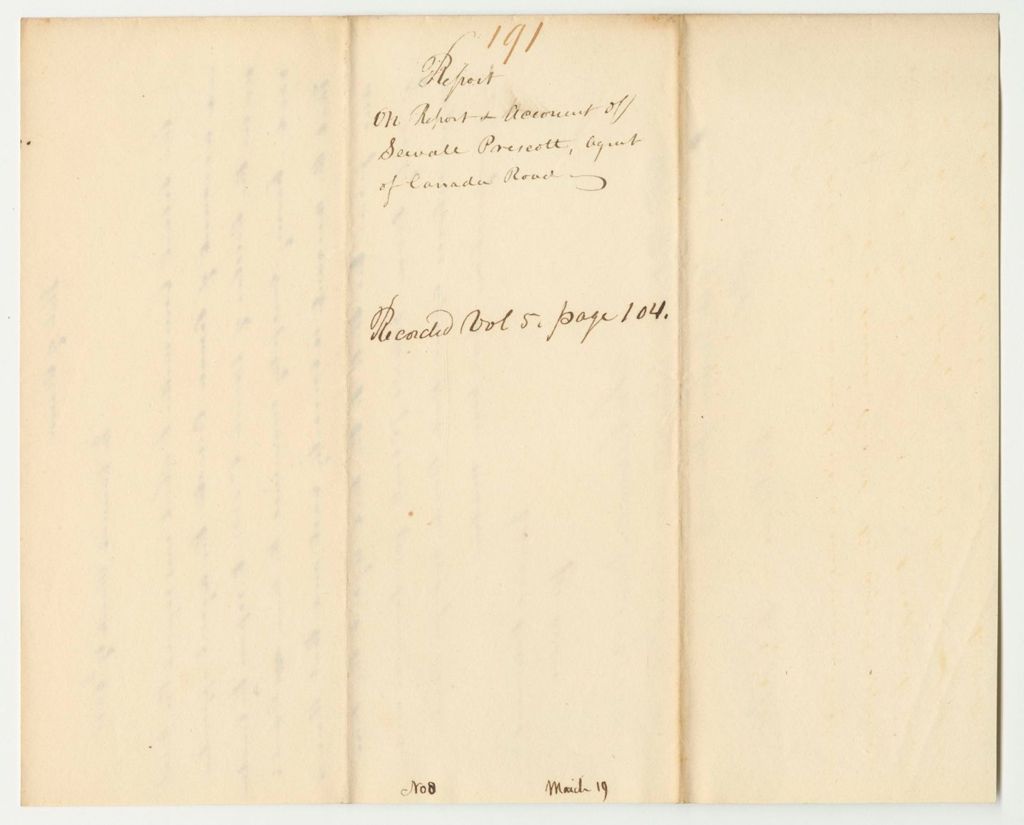 191
Report
On Report & Account of
Sewall Prescott, Agent
of Canada Road
Recorded Vol 5. page 104.
No 8
March 19